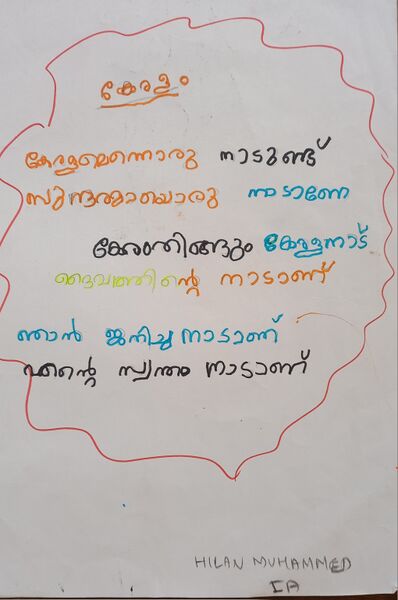 കേരളം
കേരളമെന്നൊരു നാടുണ്ട്
സുന്ദരമായൊരു നാടാണേ
കേരംതിങ്ങും കേരളനാട്
ദൈവത്തിന്റെ നാടാണ്
ഞാൻ ജനിച്ച നാടാണ്
എന്റെ സ്വന്തം നാടാണ്
HILAN MUHAMMED
IA